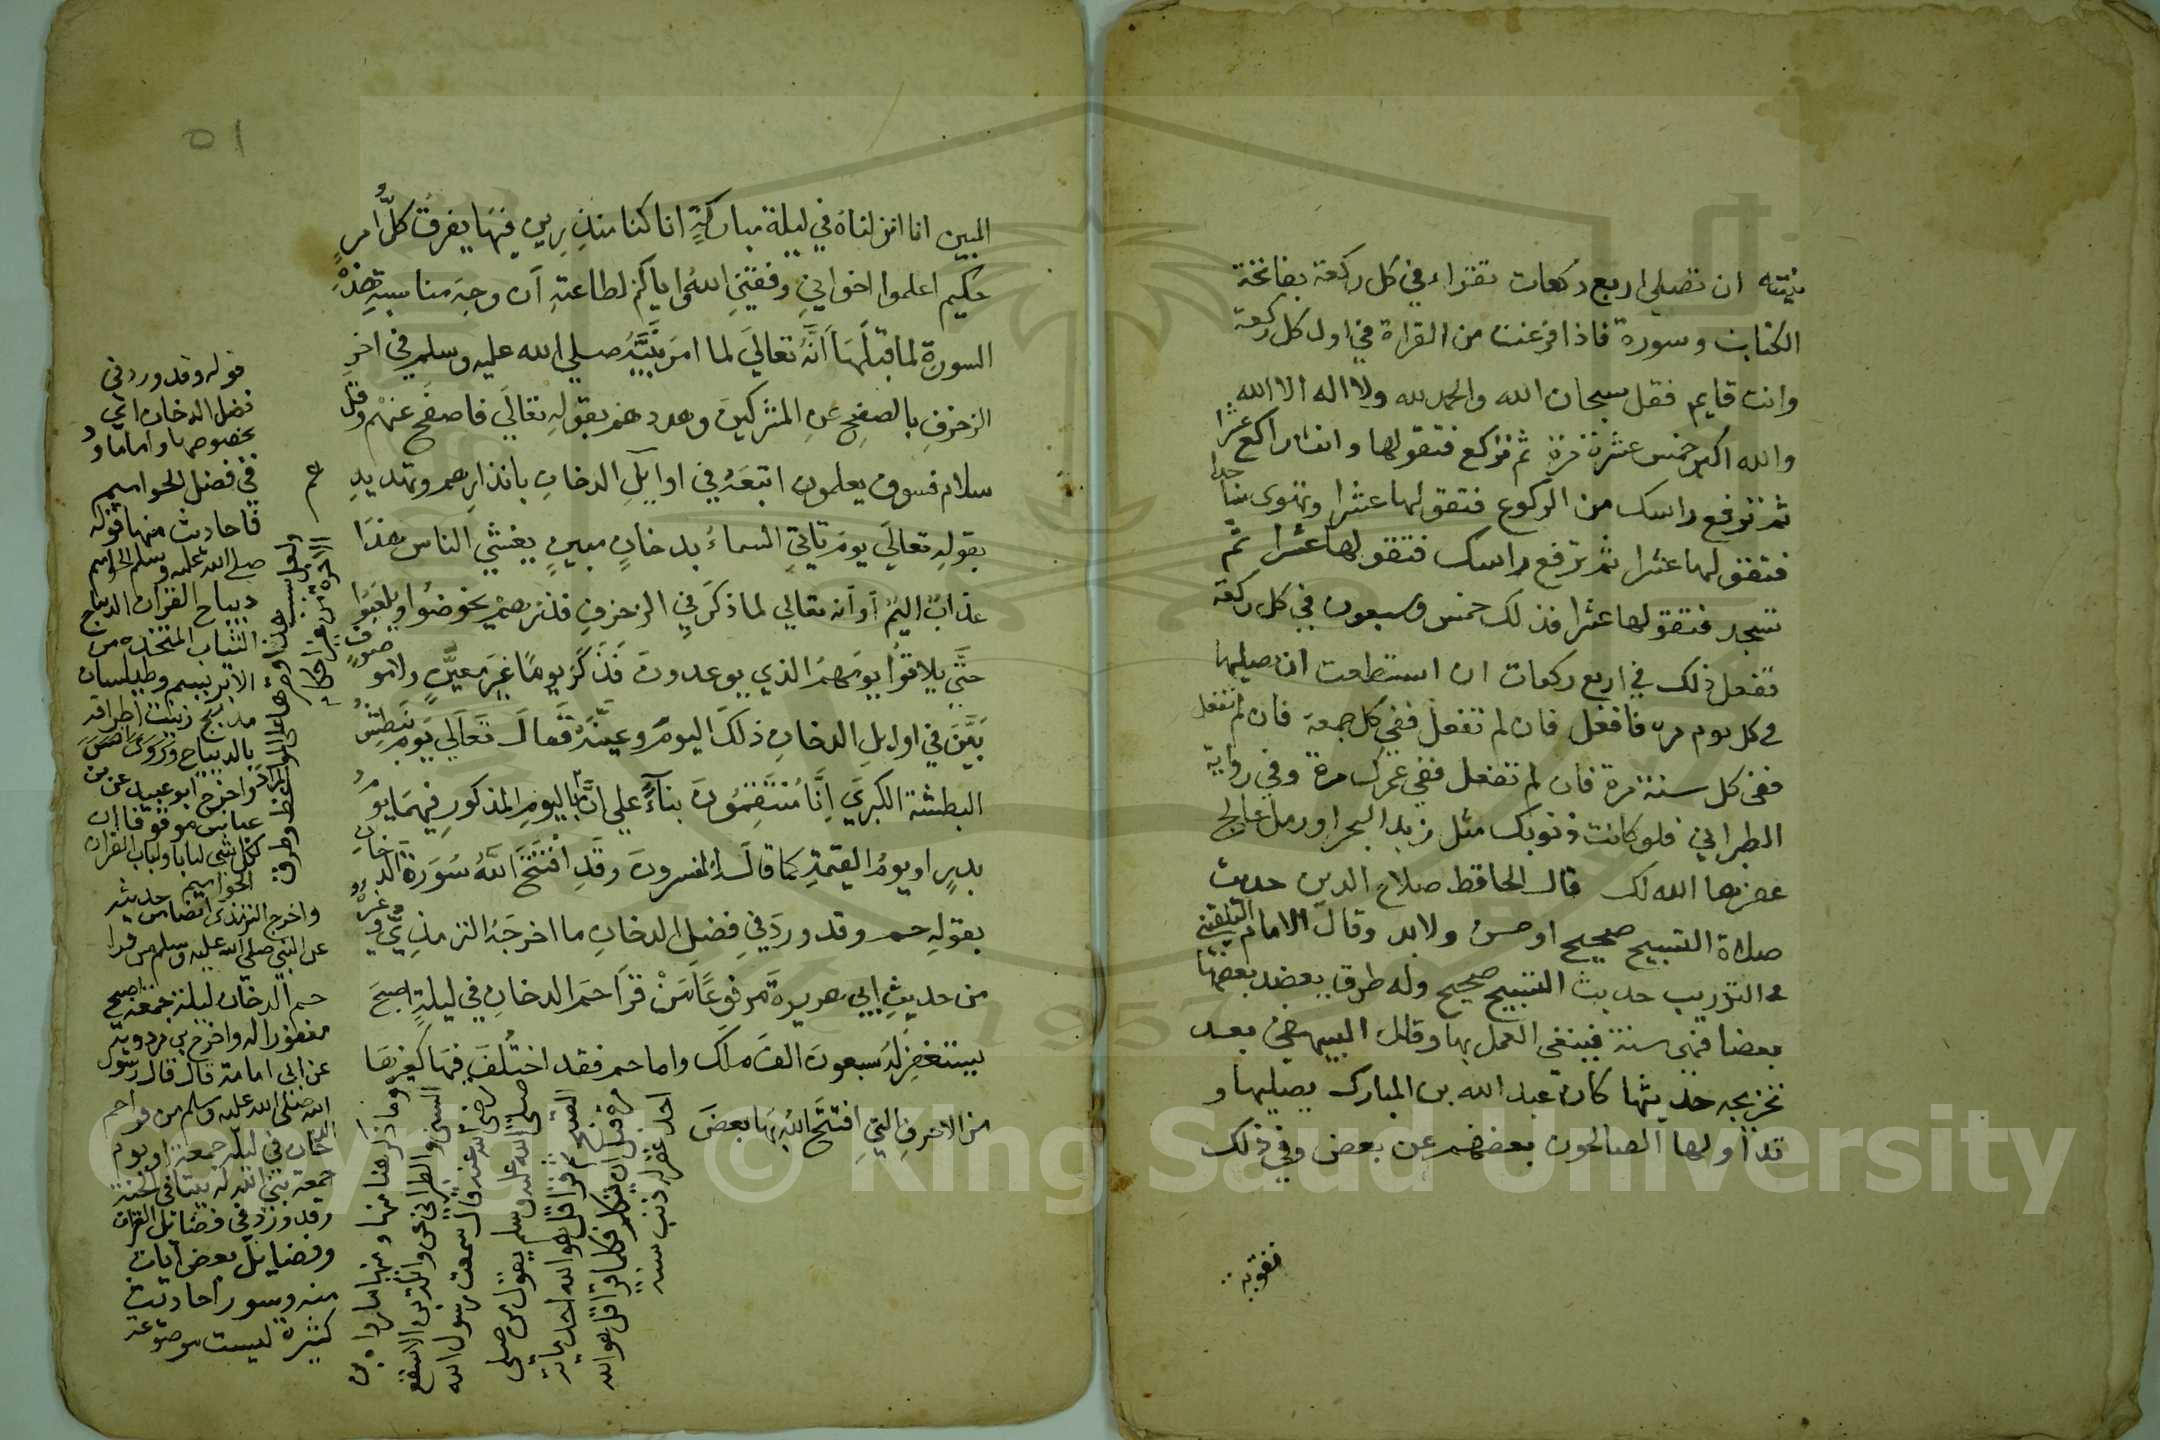 ان تصلي اربع ركعات تقراء في كل ركعة بفاتحة
الكتاب وسورة فاذا فرغت من القراة في اول كل ركعة
وانت قايم فقل سبحان الله والحمد لله ولا اله الا الله
والله اكبر خمس عشرة مرة ثم تركع فتقولها وانت راكع عشرا
ثم ترفع راسك من الركوع فتقولها عشرا وتهوى ساجدا
فتقولها عشرا ثم ترفع راسك فتقولها عشرا ثم
تسجد فتقولها عشرا فذلك خمس وسبعون في كل ركعة
تفعل ذلك في اربع ركعات ان استطعت ان تصليها
في كل يوم مرة فافعل فان لم تفعل ففي كل جمعة فان لم تفعل
ففي كل سنة مرة فان لم تفعل ففي عمرك مرة وفي رواية
الطبراني فلو كانت ذنوبك مثل زبد البحر او رمل عالج
غفرها الله لك قال الحافظ صلاح الدين حديث
صلاة التسبيح صحيح او حسن ولا بد وقال الامام البلقيني
في التدريب حديث التسبيح صحيح وله طرق يعضد بعضها
بعضا فهي سنة فينبغي العمل بها وقال البيهقي بعد
تخريجه حديثها كان عبد الله بن المبارك يصليها و
تداولها الصالحون بعضهم عن بعض وفي ذلك
تقوية
٥١
المبين انا انزلناه في ليلة مباركة انا كنا منذرين فيها يفرق كل امر
حكيم اعلموا اخواني وفقني الله واياكم لطاعته ان وجه مناسبة هذه
السورة لما قبلها انه تعالى لما امر نبيه صلي الله عليه وسلم في اخر
الزخرف بالصفح عن المشركين وهددهم بقوله تعالى فاصفح عنهم وقل
سلام فسوف يعلمون اتبعه في اوايل الدخان بانذارهم وتهديد
بقوله تعالى يوم تاتي السماء بدخان مبين يغشي الناس هذا
عذاب اليم او انه تعالي لما ذكر في الزخرف فذرهم يخوضوا ويلعبوا
حتي يلاقوا يومهم الذي يوعدون فذكر يوما غير معين ولا موصوف
بين في اوايل الدخان ذلك اليوم وعينه فقال تعالي يوم نبطش
البطشة الكبري انا منتقمون بناء علي ان اليوم المذكور فيهما يوم
بدر او يوم القيمة كما قاله المفسرون وقد افتتح الله سورة الدخان
بقوله حم وقد ورد في فضل الدخان ما اخرجه الترمذي وغيره
من حديث ابي هريرة مرفوعا من قرا حم الدخان في ليلة اصبح
يستغفر له سبعون الف ملك واما حم فقد اختلف فيها كغيرها
من الاحرف التي افتتح الله بها بعض
قوله وقد ورد في
فضل الدخان اي
بخصوصها واما ما ورد
في فضل الحواميم
فاحاديث منها قوله
صلي الله عليه وسلم الحواميم
ديباج القران الديباج
الثياب المتخذة من
الابريسم وطيلسان
مدبج زينت اطرافه
بالديباج
واخرج ابو عبيد عن ابن
عباس موقوفا ان
لكل شي لبابا ولباب القران
الحواميم
واخرج الترمذي ايضا من حديثه
عن النبي صلي الله عليه وسلم من قرا
حم الدخان ليلة جمعة اصبح
مغفورا له واخرج ابن مردويه
عن ابي امامة قال قال رسول
الله صلي الله عليه وسلم من قرا حم
الدخان في ليلة جمعة او يوم
جمعة بني الله له بيتا في الجنة
وقد ورد في فضايل القران
وفضايل بعض ايات
منه وسور احاديث
كثيرة ليست موضوعة
وما ذكر هنا منها ومنها ما رواه ابن
السني والطبراني عن واثلة بن الاسقع
رضي الله عنه قال سمعت رسول الله
صلي الله عليه وسلم يقول من صلي
الصبح ثم قرا قل هو الله احد ماية
مرة قبل ان يتكلم فكلما قرا قل هو الله
احد غفر له ذنب سنة
Copyright © King Saud University
1957